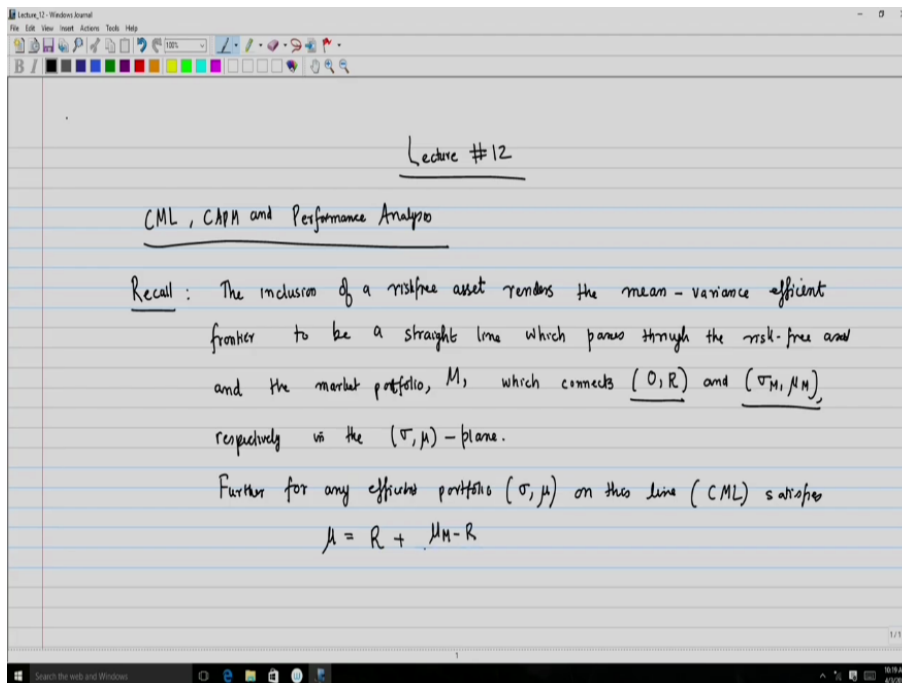 Lecture_12 - Windows Journal
File Edit View Insert Actions Tools Help
100%
B I
Lecture #12
CML, CAPM and Performance Analysis
Recall : The inclusion of a riskfree asset renders the mean - variance efficient
frontier to be a straight line which passes through the risk-free asset
and the market portfolio, M, which connects (0, R) and (σM, μM),
respectively in the (σ, μ) - plane.
Further for any efficient portfolio (σ, μ) on this line (CML) satisfies
μ = R + μM - R
1/1
1
Search the web and Windows
10:19 A